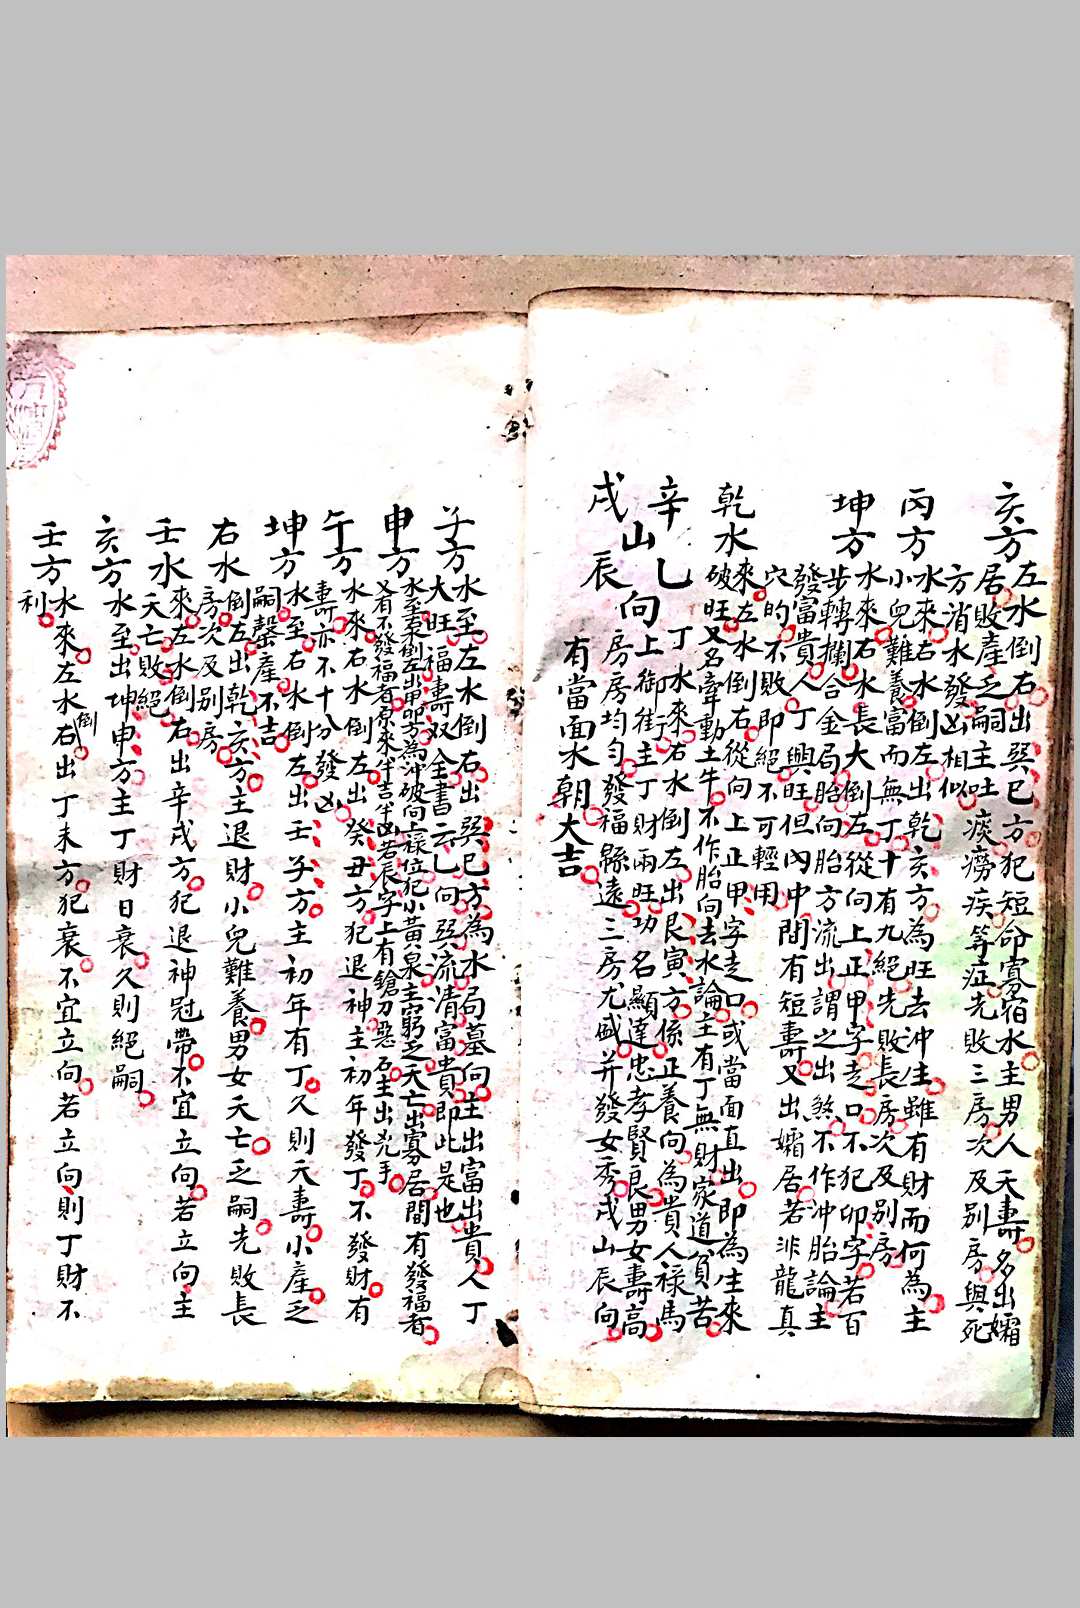 亥方左水倒右出巽巳方犯短命寡宿水主男人夭壽名出孀
居敗產乏嗣主吐痰癆疾等症先敗三房次及別房與死
方消水發凶相似
丙方水來右水倒左出乾亥方為旺去沖生雖有財而何為主
小兒難養富而無丁十有九絕先敗長房次及別房
坤方水來右水長大倒左從向上正甲字走口不犯卯字若百
步轉攔合金局胎向胎方流出謂之出煞不作沖胎論主
發富貴人丁興旺但內中間有短壽又出孀居若非龍真
穴的不敗即絕不可輕用
乾水來左水倒右從向上正甲字走口或當面直出即為生來
破旺又名牽動土牛不作胎向去水論主有丁無財家道貧苦
辛山乙向丁水來右水倒左出艮寅方係正養向為貴人祿馬
上御街主丁財兩旺功名顯達忠孝賢良男女壽高
房房均勻發福縣遠三房尤盛并發女秀戌山辰向
戌 辰 有當面水朝大吉
子方水至左水倒右出巽巳方為水局墓向主出富出貴人丁
大旺福壽双全書云乙向巽流清富貴即此是也
申方水至來倒左出甲卯方為沖破向上祿位犯小黃泉主窮乏夭亡出寡居間有發福者
又有不發福者原來半吉半凶若辰字上有鎗刀惡石主出兇手
午方水來右水倒左出癸丑方犯退神主初年發丁不發財有
壽亦不十分發凶
坤方水至右水倒左出壬子方主初年有丁久則夭壽小產乏
嗣罄產不吉
右水倒左出乾亥方主退財小兒難養男女夭亡乏嗣先敗長
房次及別房
壬水來左水倒右出辛戌方犯退神冠帶不宜立向若立向主
夭亡敗絕
亥方水至出坤申方主丁財日衰久則絕嗣
壬方水來左水倒右出丁未方犯衰不宜立向若立向則丁財不
利